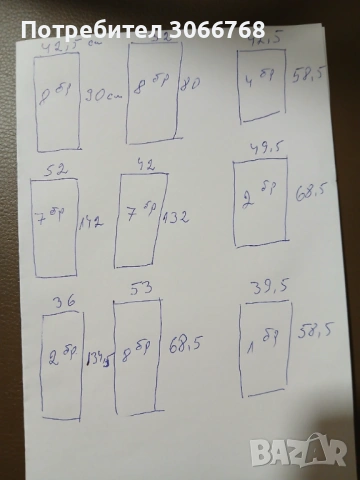 Потребител 3066768
42,5 см
42,5
8 бр 90 см
8 бр 80
4 бр 58,5
52
42
49,5
7 бр 142
7 бр 132
2 бр 68,5
36
53
39,5
2 бр. 134,5
8 бр 68,5
1 бр 58,5
BAZAR